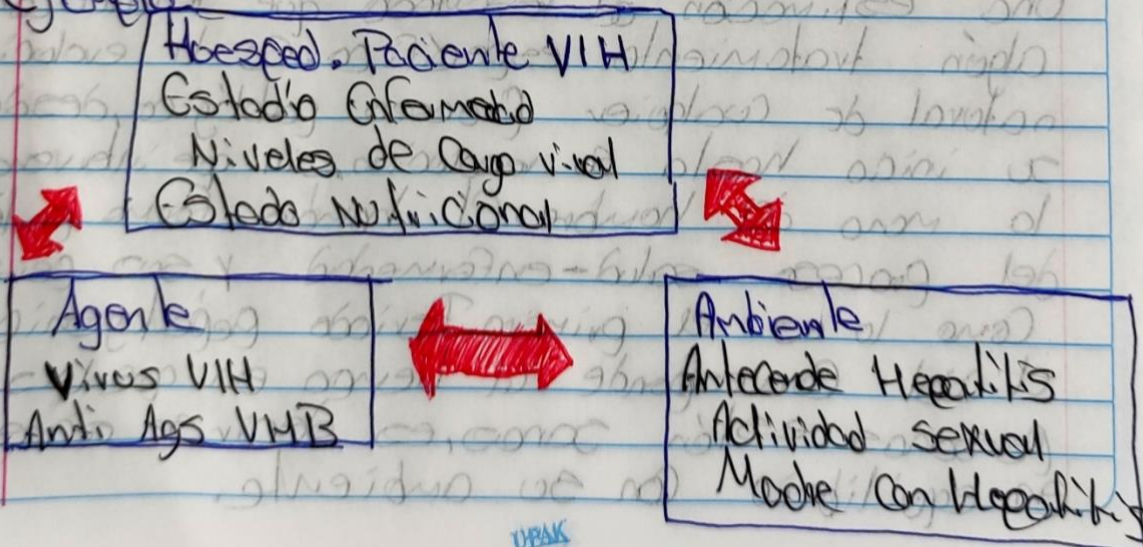 Ejemplo
Hoesped. Paciente VIH
Estadío Enfermedad
Niveles de Carga viral
Estado Nutricional
Agente
Virus VIH
Anti Ags VHB
Ambiente
Antecende Hepatitis
Actividad sexual
Madre con Hepatitis